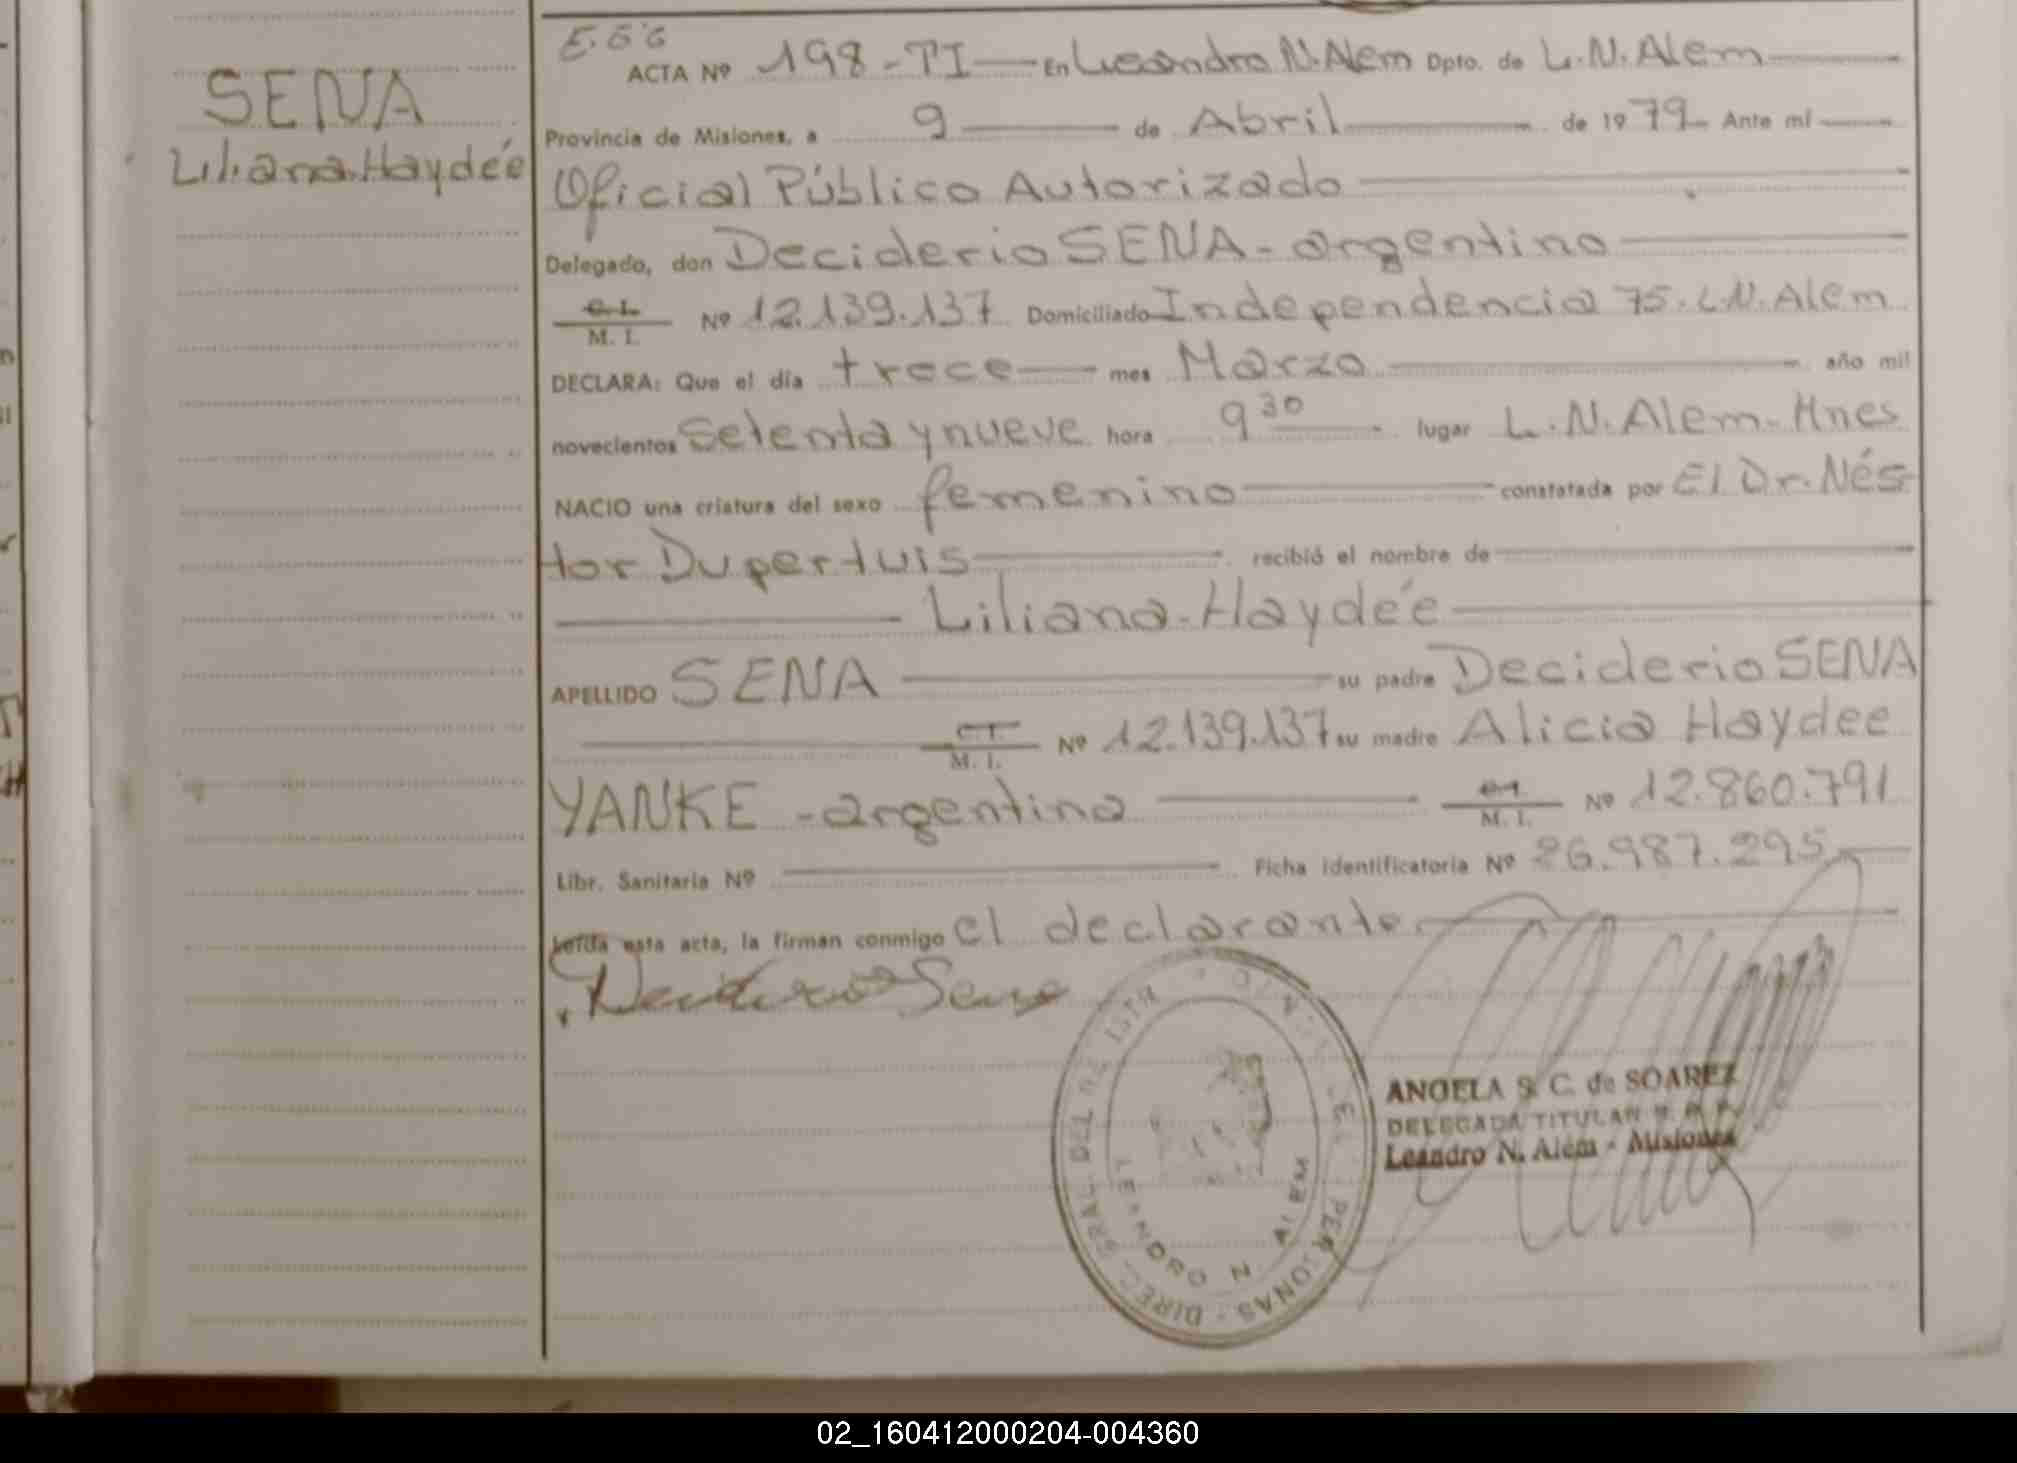 SENA
Liliana-Haydée
ACTA Nº 198-TI En Leandro N. Alem Dpto. de L.N. Alem
Provincia de Misiones, a 9 de Abril de 1979 Ante mí
Oficial Público Autorizado
Delegado, don Deciderio SENA - argentino
C.I.
M. I. Nº 12.139.137 Domiciliado Independencia 75. L.N. Alem
DECLARA: Que el día trece mes Marzo año mil
novecientos setenta y nueve hora 9 30 lugar L.N. Alem-Mnes
NACIO una criatura del sexo femenino constatada por El Dr. Nés-
tor Dupertuis recibió el nombre de
Liliana-Haydée
APELLIDO SENA su padre Deciderio SENA
C.I.
M. I. Nº 12.139.137 su madre Alicia Haydee
YANKE - argentina C.I.
M. I. Nº 12.860.791
Libr. Sanitaria Nº Ficha identificatoria Nº 26.987.295
Leída esta acta, la firman conmigo el declarante
Deciderio Sena
DIREC. GRAL. DEL REGISTRO PERSONAS
LEANDRO N. ALEM
ANGELA S. C. de SOAREZ
DELEGADA TITULAR
Leandro N. Alem - Misiones
02_160412000204-004360